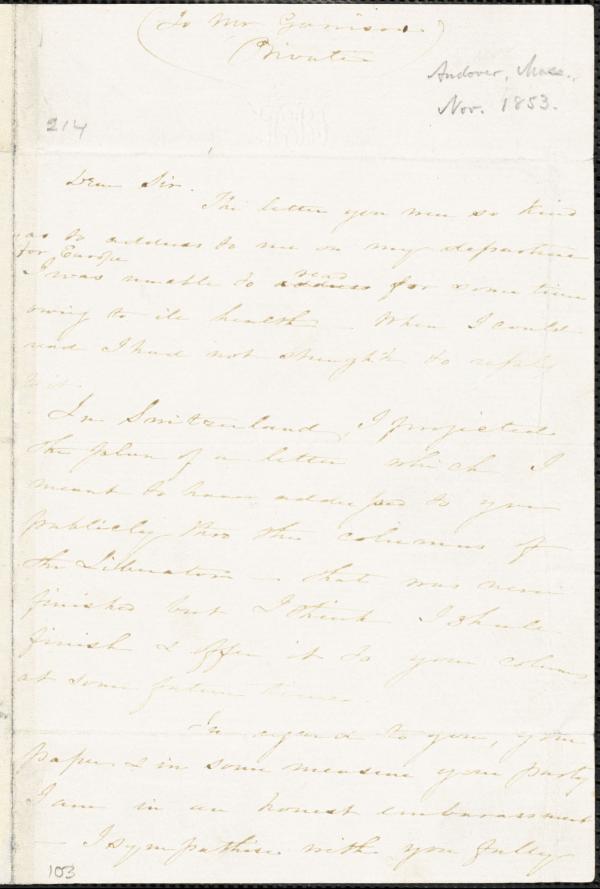 (To Mr Garrison)
Private
Andover, Mass.,
Nov. 1853.
214
Dear Sir.
The letter you were so kind
as to address to me on my departure
for Europe
I was unable to read for some time
owing to ill health - When I could
read I had not strength to reply
to it.
In Switzerland, I projected
the plan of a letter which I
meant to have addressed to you
publicly thro the columns of
the Liberator - that was never
finished but I think I shall
finish & offer it to your columns
at some future time.
In regard to you, your
paper & in some measure your party
I am in an honest embarassment
- I sympathise with you fully
103